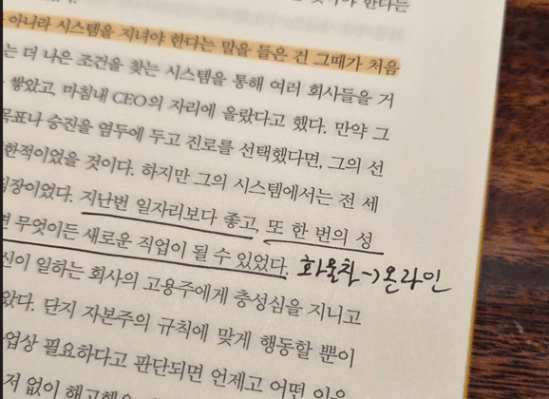 아니라 시스템을 지녀야 한다는 말을 들은 건 그때가 처음
는 더 나은 조건을 찾는 시스템을 통해 여러 회사들을 거
쌓았고, 마침내 CEO의 자리에 올랐다고 했다. 만약 그
목표나 승진을 염두에 두고 진로를 선택했다면, 그의 선
한적이었을 것이다. 하지만 그의 시스템에서는 전 세
장이었다. 지난번 일자리보다 좋고, 또 한 번의 성
면 무엇이든 새로운 직업이 될 수 있었다. 화물차->온라인
신이 일하는 회사의 고용주에게 충성심을 지니고
왔다. 단지 자본주의 규칙에 맞게 행동할 뿐이
업상 필요하다고 판단되면 언제고 어떤 이유
저 없이 해고해